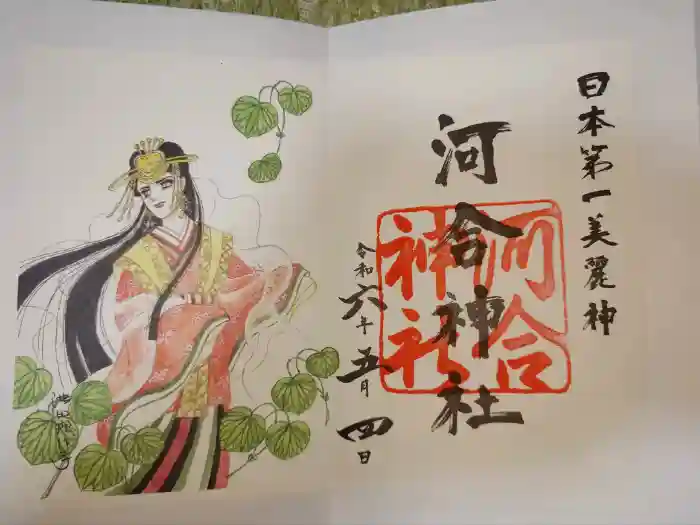 日本第一美麗神
河合神社
河合
神社
令和六年五月四日